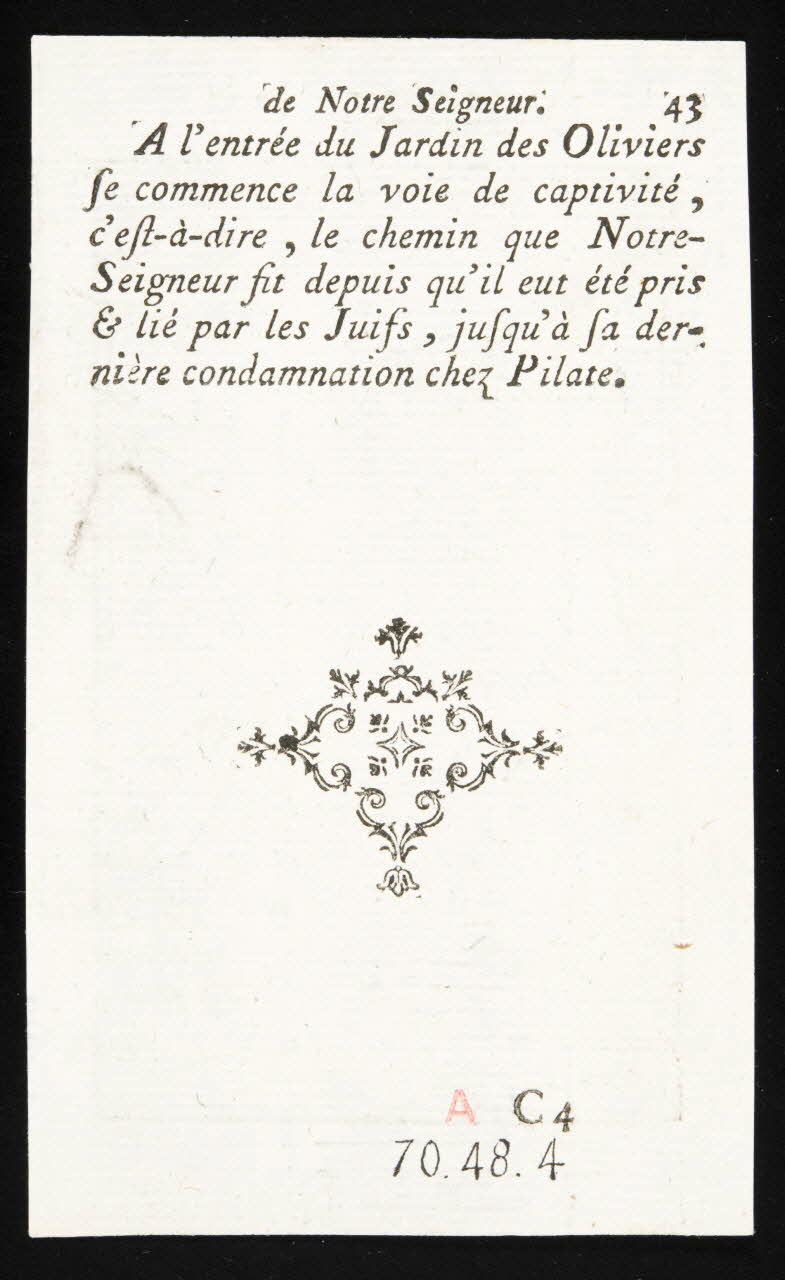 de Notre Seigneur. 43
A l'entrée du Jardin des Oliviers
ſe commence la voie de captivité,
c'eſt-à-dire, le chemin que Notre-
Seigneur fit depuis qu'il eut été pris
& lié par les Juifs, juſqu'à ſa der-
nière condamnation chez Pilate.
A C 4
70.48.4